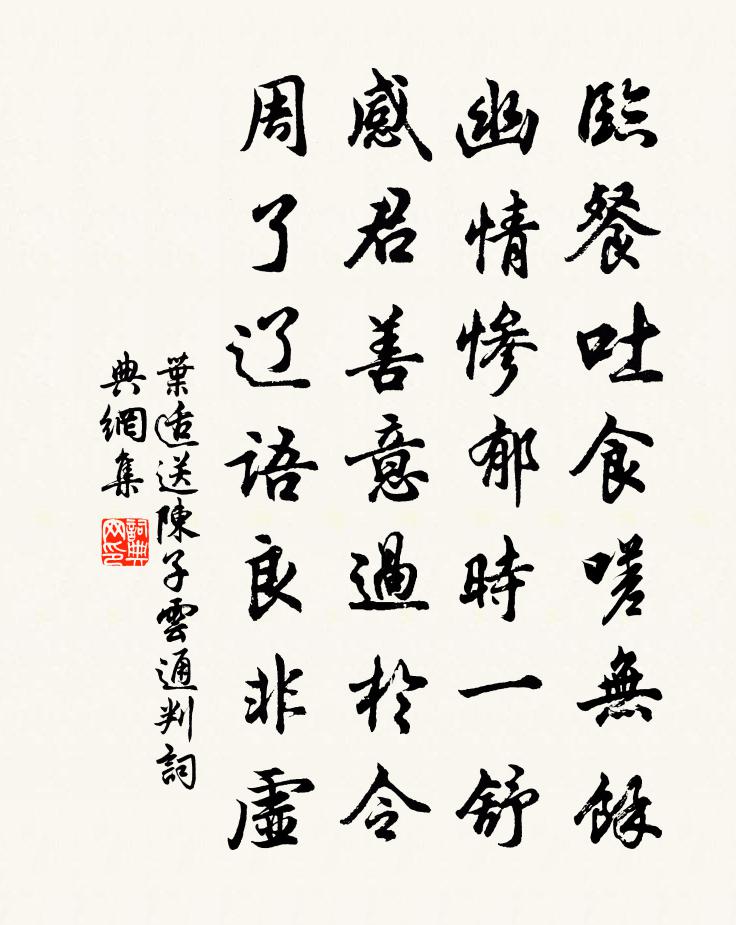 臨餐吐食嗟無餘
幽情慘郁時一舒
感君善意過於令
周了辺語良非虛
葉適送陳子雲通判詞
典網集
詞典
网印